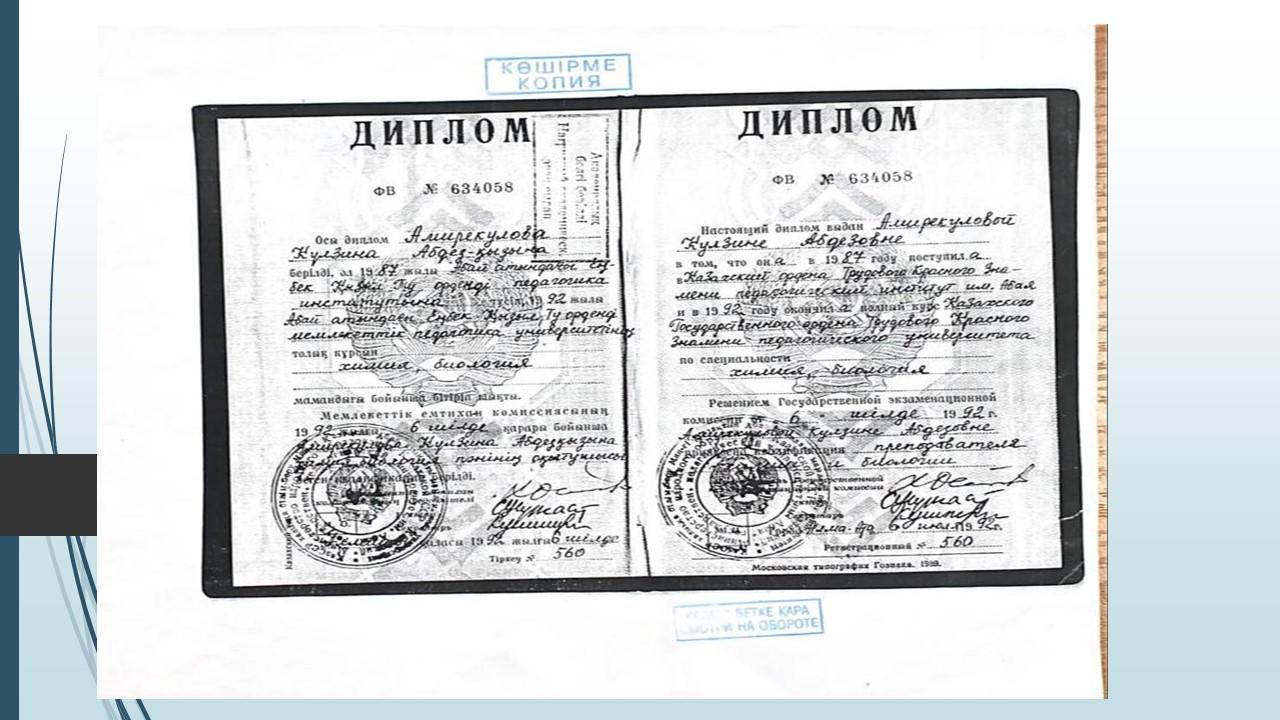 КӨШІРМЕ
КОПИЯ
ДИПЛОМ
ФВ № 634058
Осы диплом Амирекулова
Кулзина Абдез-қызына
берілді, ол 1987 жылы Абай атындағы Ең-
бек Қызыл Ту орденді педагогика
институтына түсіп, 1992 жылы
Абай атындағы Еңбек Қызыл Ту орденді
мемлекеттік педагогика университетінің
толық курсын
химия, биология
мамандығы бойынша бітіріп шықты.
Мемлекеттік емтихан комиссиясының
1992 6 шілде қарары бойынша
Амирекулова Кулзина Абдезқызына
пәнінің оқытушысы
берілді.
1992 жылғы 6 шілде
Тіркеу № 560
ДИПЛОМ
ФВ № 634058
Настоящий диплом выдан Амирекуловой
Кулзине Абдезовне
в том, что она в 1987 году поступила
в Казахский ордена Трудового Красного Зна-
мени педагогический институт им. Абая
и в 1992 году окончила полный курс Казахского
Государственного ордена Трудового Красного
Знамени педагогического университета
по специальности
химия, биология
Решением Государственной экзаменационной
комиссии от " 6 " шілде 1992 г.
Амирекуловой Кулзине Абдезовне
присвоена квалификация преподавателя
и биологии
Алма-Ата 6 июля 1992г.
Регистрационный № 560
Московская типография Гознака. 1989.
БЕТКЕ ҚАРА
СМОТРИ НА ОБОРОТЕ